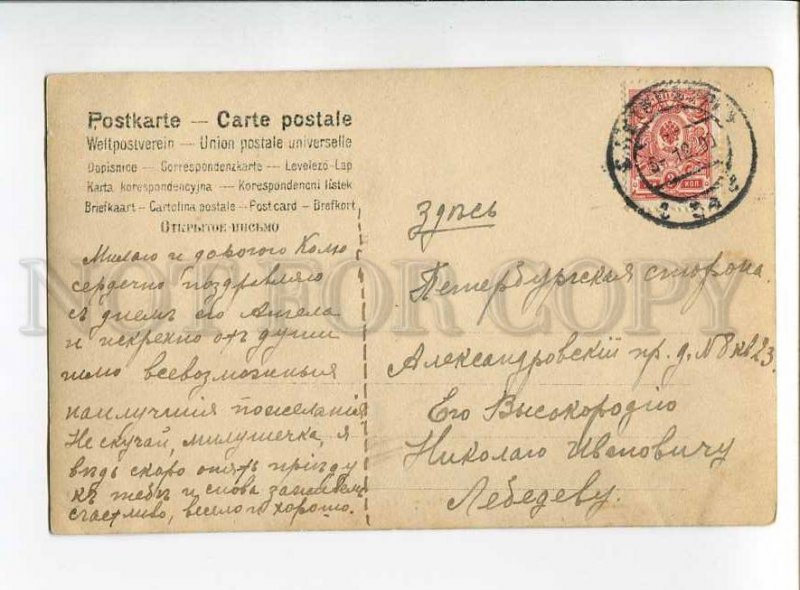 Postkarte — Carte postale
Weltpostverein — Union postale universelle
Dopisnice — Correspondenzkarte — Levelező-Lap
Karta korespondencyjna — Korespondencni listek
Briefkaart — Cartolina postale — Post card — Brefkort
Открытое письмо
Милаго и дорогого Колю
сердечно поздравляю
съ днемъ его Ангела
и искренно отъ души
шлю всевозможныя
наилучшія пожеланія
Не скучай, милушечка, я
вѣдь скоро опять пріѣду
къ тебѣ и снова заживемъ
счастливо, весело и хорошо.
Здѣсь
Петербургская сторона.
Александровскій пр. д. N 8 кв 23.
Его Высокородію
Николаю Ивановичу
Лебедеву.
КОП
NOT FOR COPY